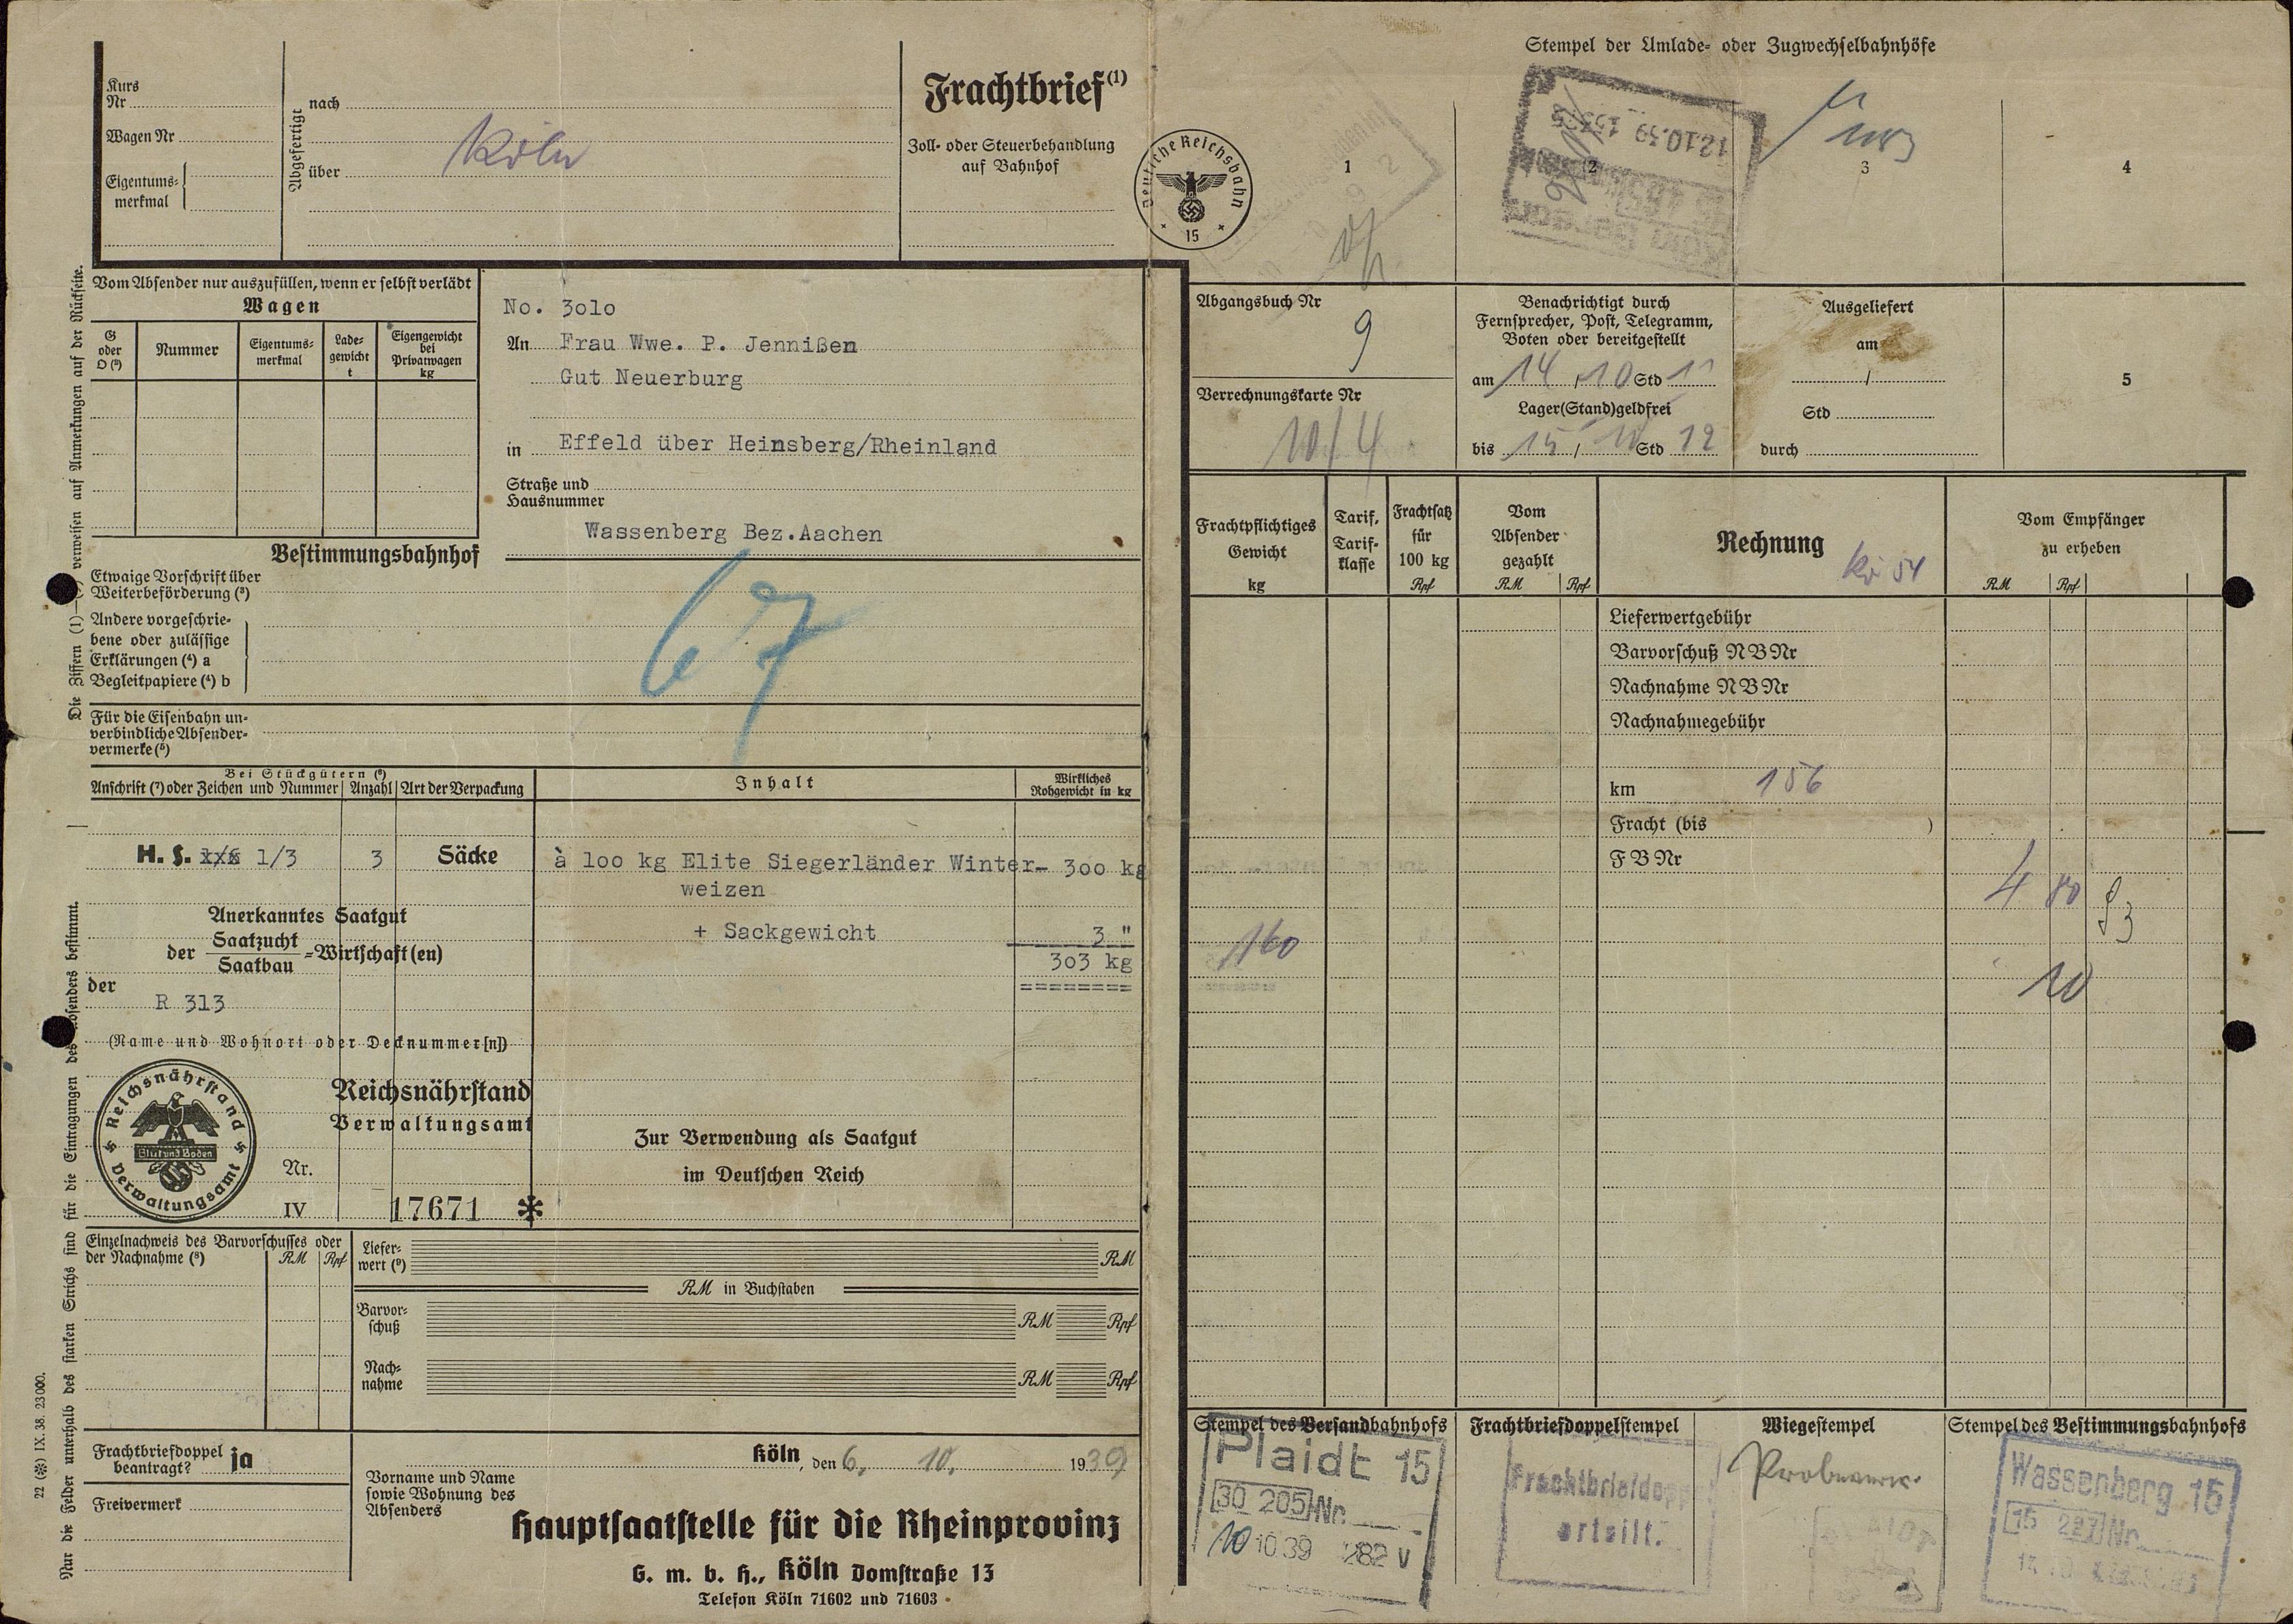 Kurs
Nr
Wagen Nr
Eigentums-
merkmal
Abgefertigt
nach
über
Köln
Frachtbrief (1)
Zoll- oder Steuerbehandlung
auf Bahnhof
Deutsche Reichsbahn
15
Stempel der Umlade- oder Zugwechselbahnhöfe
1
2
3
4
5
12.10.39
Vom Absender nur auszufüllen, wenn er selbst verlädt
Wagen
G
oder
O (²)
Nummer
Eigentums-
merkmal
Lade-
gewicht
t
Eigengewicht
bei
Privatwagen
kg
No. 3olo
An Frau Wwe. P. Jennißen
Gut Neuerburg
in Effeld über Heinsberg/Rheinland
Straße und
Hausnummer
Wassenberg Bez.Aachen
Bestimmungsbahnhof
Etwaige Vorschrift über
Weiterbeförderung (³)
Andere vorgeschrie-
bene oder zulässige
Erklärungen (⁴) a
Begleitpapiere (⁴) b
67
Für die Eisenbahn un-
verbindliche Absender-
vermerke (⁵)
Bei Stückgütern (⁶)
Anschrift (⁷) oder Zeichen und Nummer
Anzahl
Art der Verpackung
Inhalt
Wirkliches
Rohgewicht in kg
H. S. 1/3
3
Säcke
à loo kg Elite Siegerländer Winter-
weizen
3oo kg
+ Sackgewicht
3 "
3o3 kg
========
Anerkanntes Saatgut
der Saatzucht
Saatbau
=Wirtschaft(en)
der
R 313
(Name und Wohnort oder Decknummer[n])
Reichsnährstand
Verwaltungsamt
Blut und Boden
Reichsnährstand
Verwaltungsamt
Nr.
IV
17671 *
Zur Verwendung als Saatgut
im Deutschen Reich
Einzelnachweis des Barvorschusses oder
der Nachnahme (⁸)
RM
Rpf
Liefer-
wert (⁹)
RM
RM in Buchstaben
Barvor-
schuß
RM
Rpf
Nach-
nahme
RM
Rpf
Frachtbriefdoppel
beantragt?
ja
Freivermerk
Köln, den 6. 10. 1939
Vorname und Name
sowie Wohnung des
Absenders
Hauptsaatstelle für die Rheinprovinz
G. m. b. H., Köln Domstraße 13
Telefon Köln 71602 und 71603
Die Ziffern (1) verweisen auf Anmerkungen auf der Rückseite.
Nur die Felder unterhalb des starken Strichs sind für die Eintragungen des Absenders bestimmt.
22 (*) IX. 38. 23000.
Abgangsbuch Nr
9
Verrechnungskarte Nr
10/4
Benachrichtigt durch
Fernsprecher, Post, Telegramm,
Boten oder bereitgestellt
am 14 / 10 Std 11
Lager(Stand)geldfrei
bis 15 / 10 Std 12
Ausgeliefert
am
/
Std
durch
Frachtpflichtiges
Gewicht
kg
Tarif,
Tarif-
klasse
Frachtsatz
für
100 kg
Rpf
Vom
Absender
gezahlt
RM
Rpf
Rechnung
Vom Empfänger
zu erheben
RM
Rpf
Lieferwertgebühr
Barvorschuß NBNr
Nachnahme NBNr
Nachnahmegebühr
km 156
Fracht (bis )
FBNr
4 80
160
10
Stempel des Versandbahnhofs
Plaidt 15
30 205 Nr.
10 10 39 282 V
Frachtbriefdoppelstempel
Frachtbriefdopp
erteilt.
Wiegestempel
Stempel des Bestimmungsbahnhofs
Wassenberg 15
15 227 Nr.